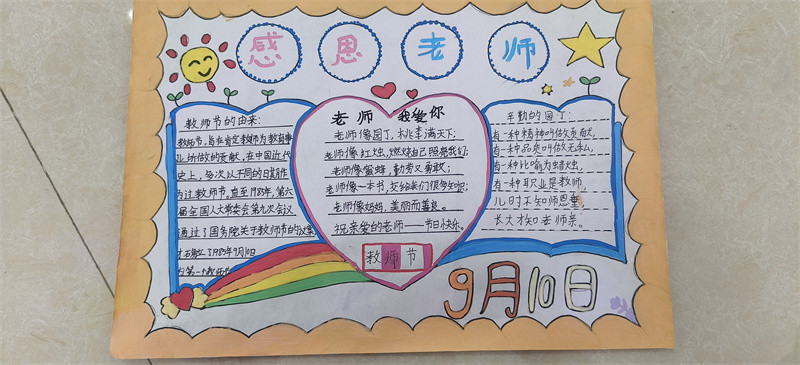 感恩老师
教师节的由来:
教师节,旨在肯定教师为教育事
业所做的贡献,在中国近代
史上,每次以不同的日期作
为过教师节,直至1985年,第六
届全国人大常委会第九次会议
通过了国务院关于教师节的议案
1985年9月10日
第一个教师节
老师 我爱你
老师像园丁,桃李满天下;
老师像红烛,燃烧自己照亮我们;
老师像蜜蜂,勤劳又勇敢;
老师像一本书,交给我们很多知识;
老师像妈妈,美丽而善良。
祝亲爱的老师——节日快乐。
教师节
辛勤的园丁:
有一种精神叫做贡献,
有一种品质叫做无私,
有一种比喻为蜡烛,
有一种职业是教师,
儿时不知师恩重,
长大才知老师亲。
9月10日